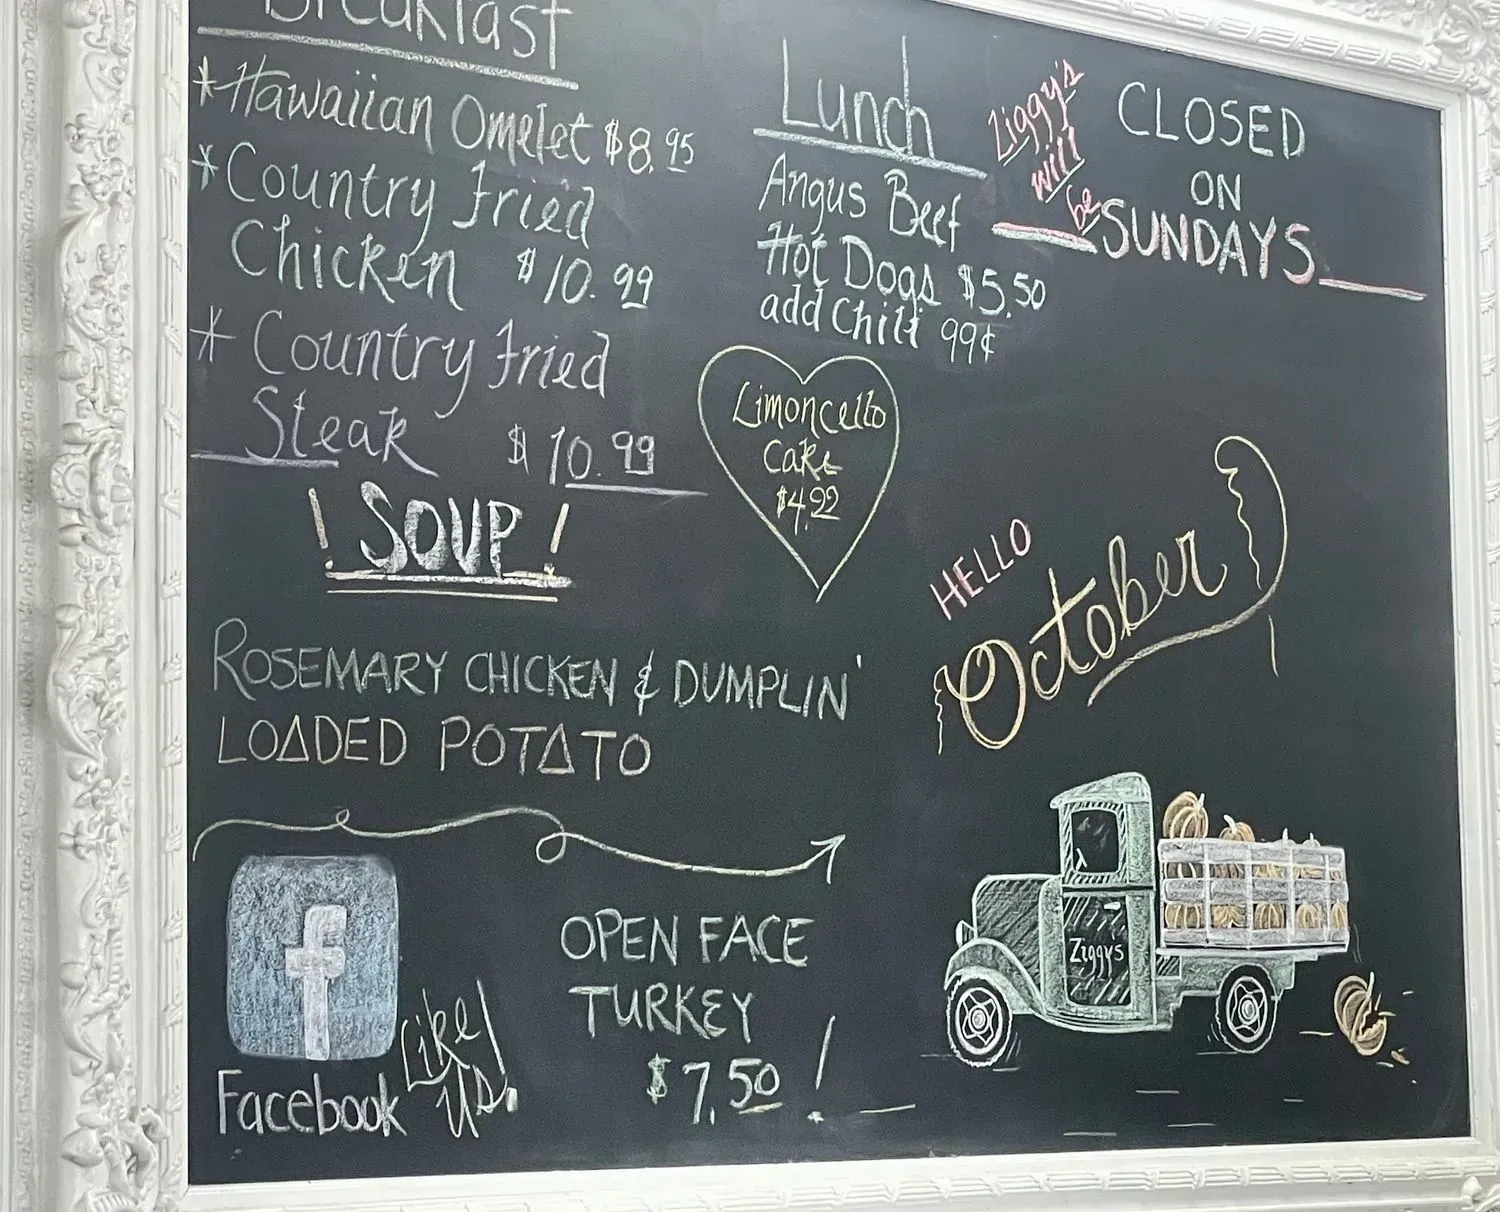 Breakfast
*Hawaiian Omelet $8.95
*Country Fried
Chicken $10.99
* Country Fried
Steak $10.99
! SOUP !
ROSEMARY CHICKEN & DUMPLIN'
LOADED POTATO
Lunch
Angus Beef
Hot Dogs $5.50
add Chili 99¢
Limoncello
Cake
$4.99
Ziggy's
will
be
CLOSED
ON
SUNDAYS
HELLO
October
Ziggys
OPEN FACE
TURKEY
$7.50!
f
Facebook
Like
us!